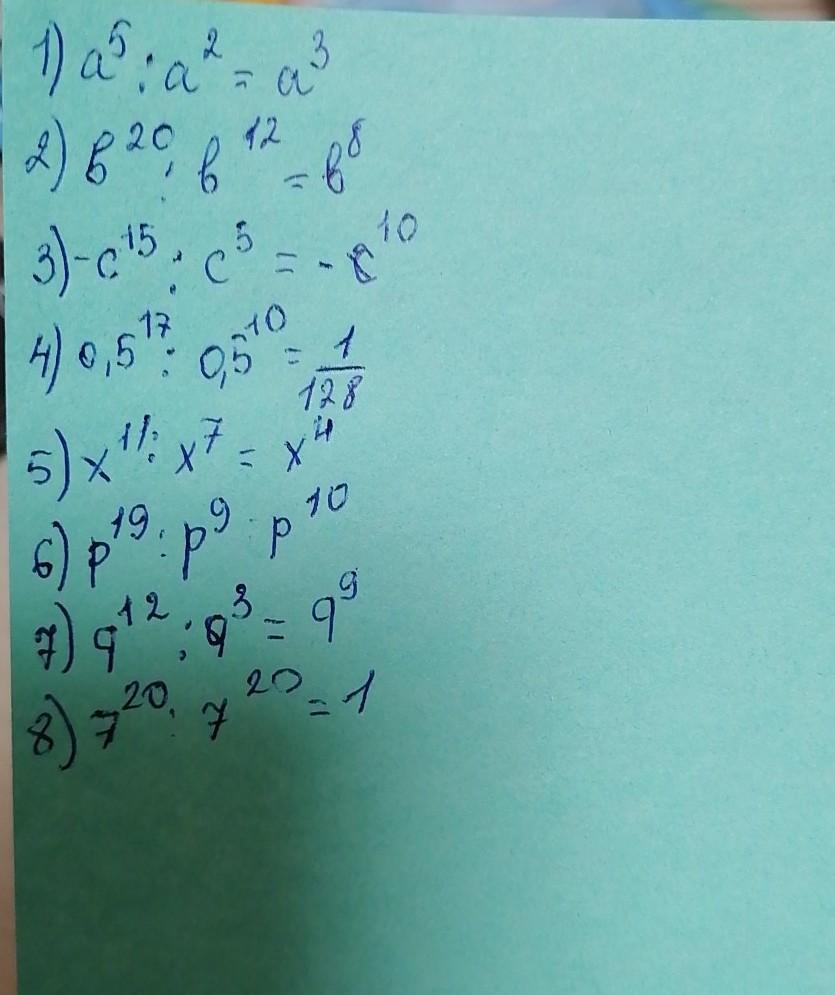 1) a⁵ : a² = a³
2) b²⁰ : b¹² = b⁸
3) -c¹⁵ : c⁵ = -c¹⁰
4) 0,5¹⁷ : 0,5¹⁰ = 1/128
5) x¹¹ : x⁷ = x⁴
6) p¹⁹ : p⁹ p¹⁰
7) q¹² : q³ = q⁹
8) 7²⁰ : 7²⁰ = 1